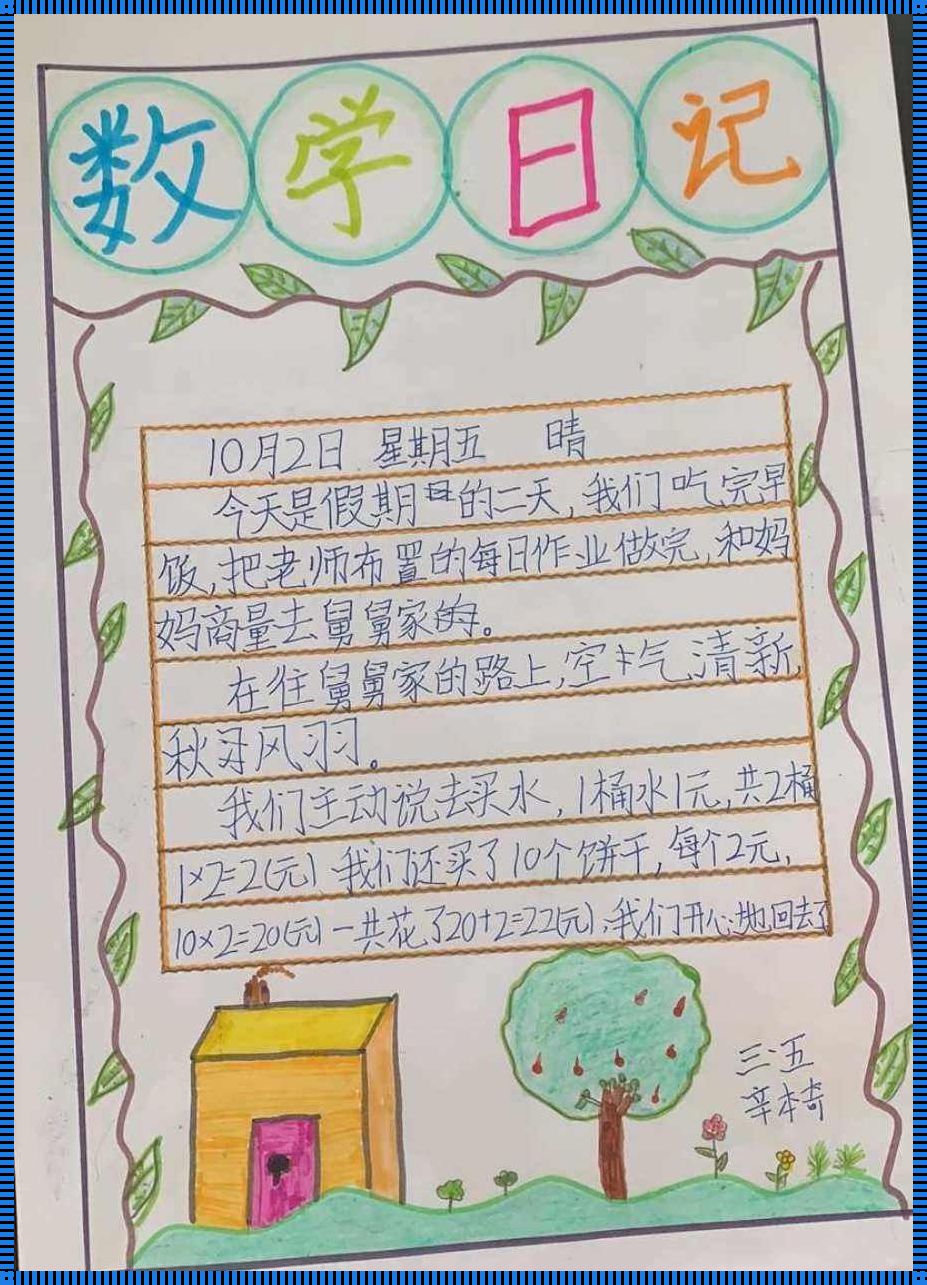 数学日记
10月2日 星期五 晴
今天是假期的二天,我们吃完早
饭,把老师布置的每日作业做完,和妈
妈商量去舅舅家的。
在往舅舅家的路上,空气清新,
秋风习习。
我们主动说去买水,1桶水1元,共2桶
1×2=2(元)我们还买了10个饼干,每个2元,
10×2=20(元)一共花了20+2=22(元),我们开心地回去了
三·五
辛本奇